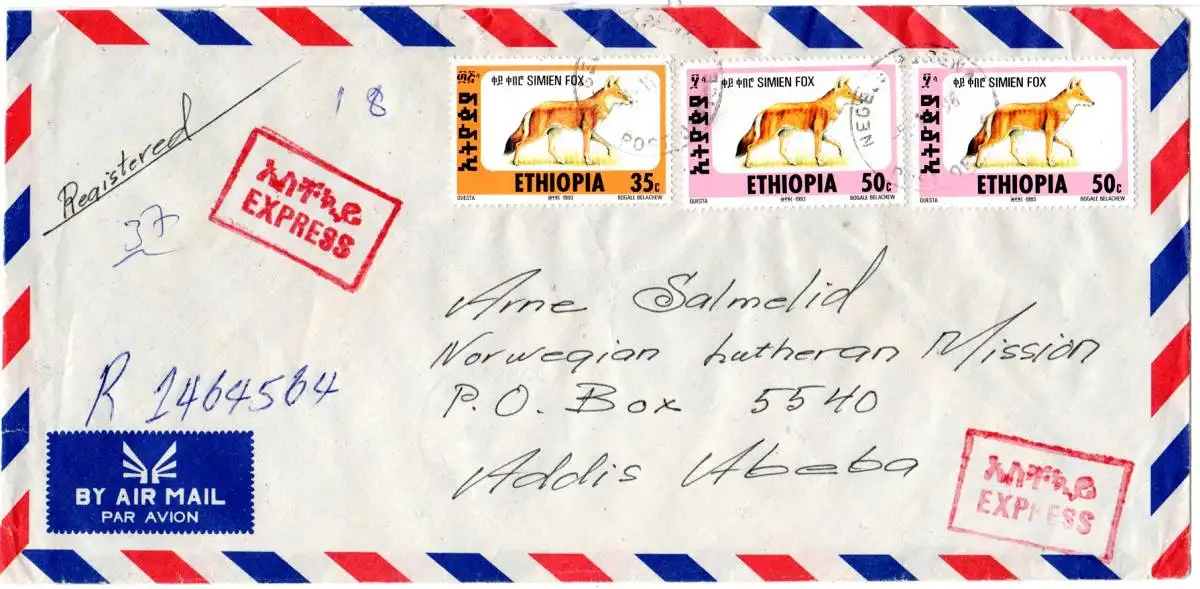 ቀይ ቀበሮ SIMIEN FOX
ኢትዮጵያ
ETHIOPIA 35c
QUESTA 1993 BOGALE BELACHEW
ቀይ ቀበሮ SIMIEN FOX
ኢትዮጵያ
ETHIOPIA 50c
QUESTA 1993 BOGALE BELACHEW
ቀይ ቀበሮ SIMIEN FOX
ኢትዮጵያ
ETHIOPIA 50c
QUESTA 1993 BOGALE BELACHEW
18
Registered
37
እስቸኳይ
EXPRESS
Arne Salmelid
Norwegian Lutheran Mission
P.O. Box 5540
Addis Abeba
R 1464564
BY AIR MAIL
PAR AVION
እስቸኳይ
EXPRESS